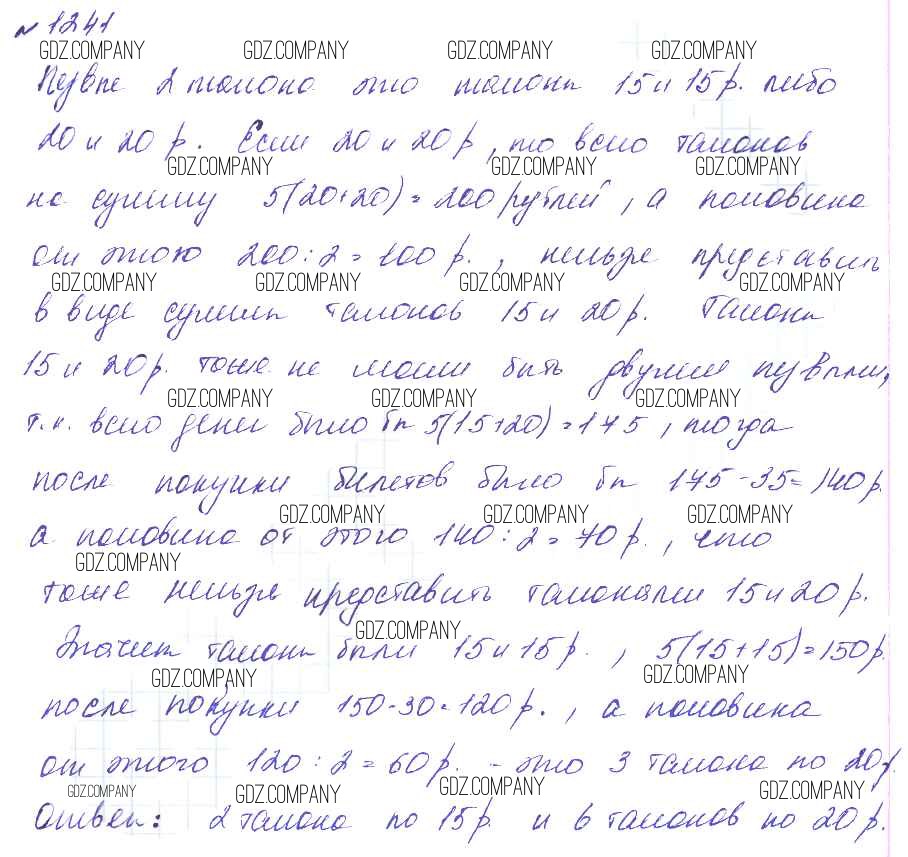 № 1241
GDZ.COMPANY GDZ.COMPANY GDZ.COMPANY GDZ.COMPANY
Первые 2 талона это талоны 15 и 15 р. либо
20 и 20 р. Если 20 и 20 р, то всего талонов
GDZ.COMPANY GDZ.COMPANY GDZ.COMPANY
на сумму 5(20+20)=200 рублей, а половина
от этого 200:2=100 р., нельзя представить
GDZ.COMPANY GDZ.COMPANY GDZ.COMPANY GDZ.COMPANY
в виде суммы талонов 15 и 20 р. Талоны
15 и 20 р. тоже не могли быть двумя первыми,
GDZ.COMPANY GDZ.COMPANY GDZ.COMPANY
т.к. всего денег было бы 5(15+20)=175, тогда
после покупки билетов было бы 175-35=140 р.
GDZ.COMPANY GDZ.COMPANY GDZ.COMPANY
а половина от этого 140:2=70 р., что
GDZ.COMPANY
тоже нельзя представить талонами 15 и 20 р.
GDZ.COMPANY
Значит талоны были 15 и 15 р., 5(15+15)=150 р.
GDZ.COMPANY GDZ.COMPANY
после покупки 150-30=120 р., а половина
от этого 120:2=60 р. - это 3 талона по 20 р.
GDZ.COMPANY GDZ.COMPANY GDZ.COMPANY GDZ.COMPANY
Ответ: 2 талона по 15 р. и 6 талонов по 20 р.